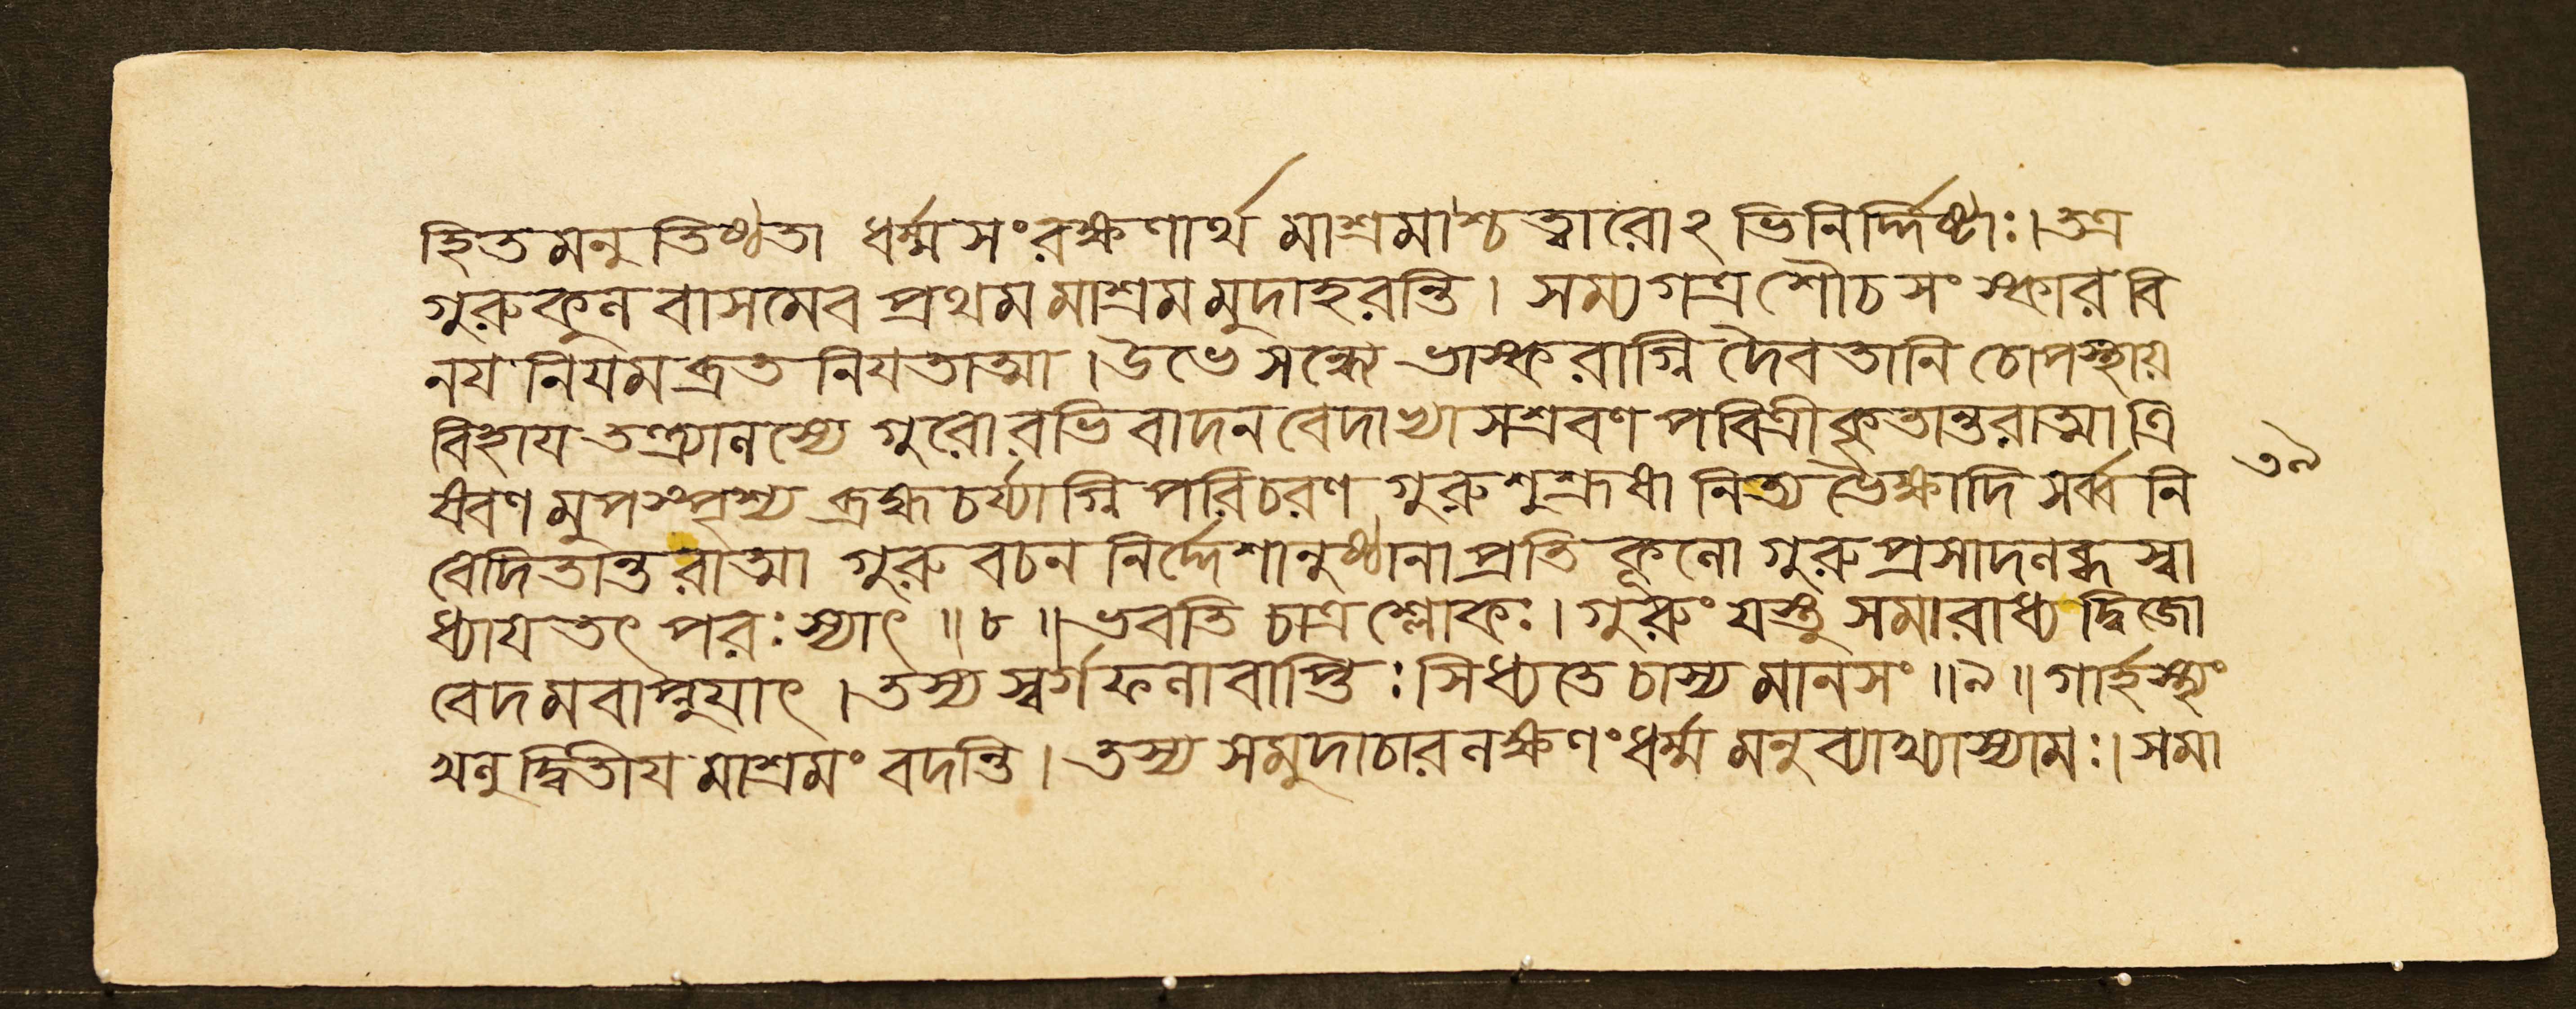 হিতমনুতিষ্ঠতা ধর্ম্মসংরক্ষণার্থমাশ্রমাশ্চত্বারোঽভিনির্দ্দিষ্টাঃ। তত্র
গুরুকুলবাসমেব প্রথমমাশ্রমমুদাহরন্তি। সম্যগত্র শৌচসংস্কারবি
নয়নিয়মব্রতনিয়তাত্মা। উভে সন্ধ্যে ভাস্করাগ্নিদৈবতানি চোপস্থায়
বিহায় তন্দ্র্যালস্যে গুরোরভিবাদনবেদাভ্যাসশ্রবণপবিত্রীকৃতান্তরাত্মা ত্রি
ষবণমুপস্পৃশ্য ব্রহ্মচর্য্যাগ্নিপরিচরণগুরুশুশ্রূষা নিত্যভৈক্ষাদিসর্ব্বনি
বেদিতান্তরাত্মা গুরুবচননির্দ্দেশানুষ্ঠানাপ্রতিকূলো গুরুপ্রসাদলব্ধস্বা
ধ্যায়তৎপরঃ স্যাৎ ॥৮॥ ভবতি চাত্র শ্লোকঃ। গুরুং যস্তু সমারাধ্য দ্বিজো
বেদমবাপ্নুয়াৎ। তস্য স্বর্গফলাবাপ্তিঃ সিধ্যতে চাস্য মানসং ॥৯॥ গার্হস্থ্যং
খলু দ্বিতীয়মাশ্রমং বদন্তি। তস্য সমুদাচারলক্ষণং ধর্ম্মমনুব্যাখ্যাস্যামঃ। সমা
৩৯